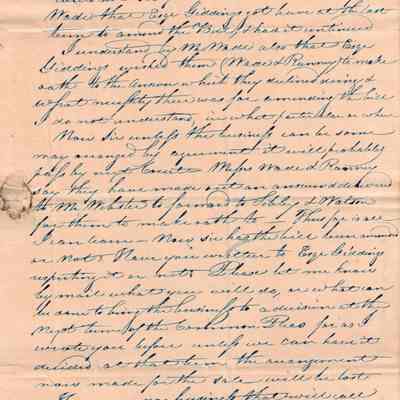 Wade that Esqr Giddings got leave at the last
term to amend the Bill & had it continued
I understand by Mr Wade also that Esqr
Giddings wished them (Wade & Ranney) to make
oath to the answer which they declined doing &
what necessity there was for amending the bill
I do not understand, in what particular or when
Now sir unless the business can be some
way arranged by agreement it will probably
pass by next Court Messrs Wade & Ranney
say they have made out an answer & delivered
to Mr Webster to forward to Sibley & Watson
for them to make oath to - Thus far is all
I can learn - Now sir has the bill been amended
or not Have you written to Esqr Giddings
respecting it or not Please let me know
by mail what you will do, or what can
be done to bring the business to a decision at the
next term of the Common Pleas for as I
wrote you before unless we can have it
decided at that term the arrangement
now made for the sale will be lost
business that will call